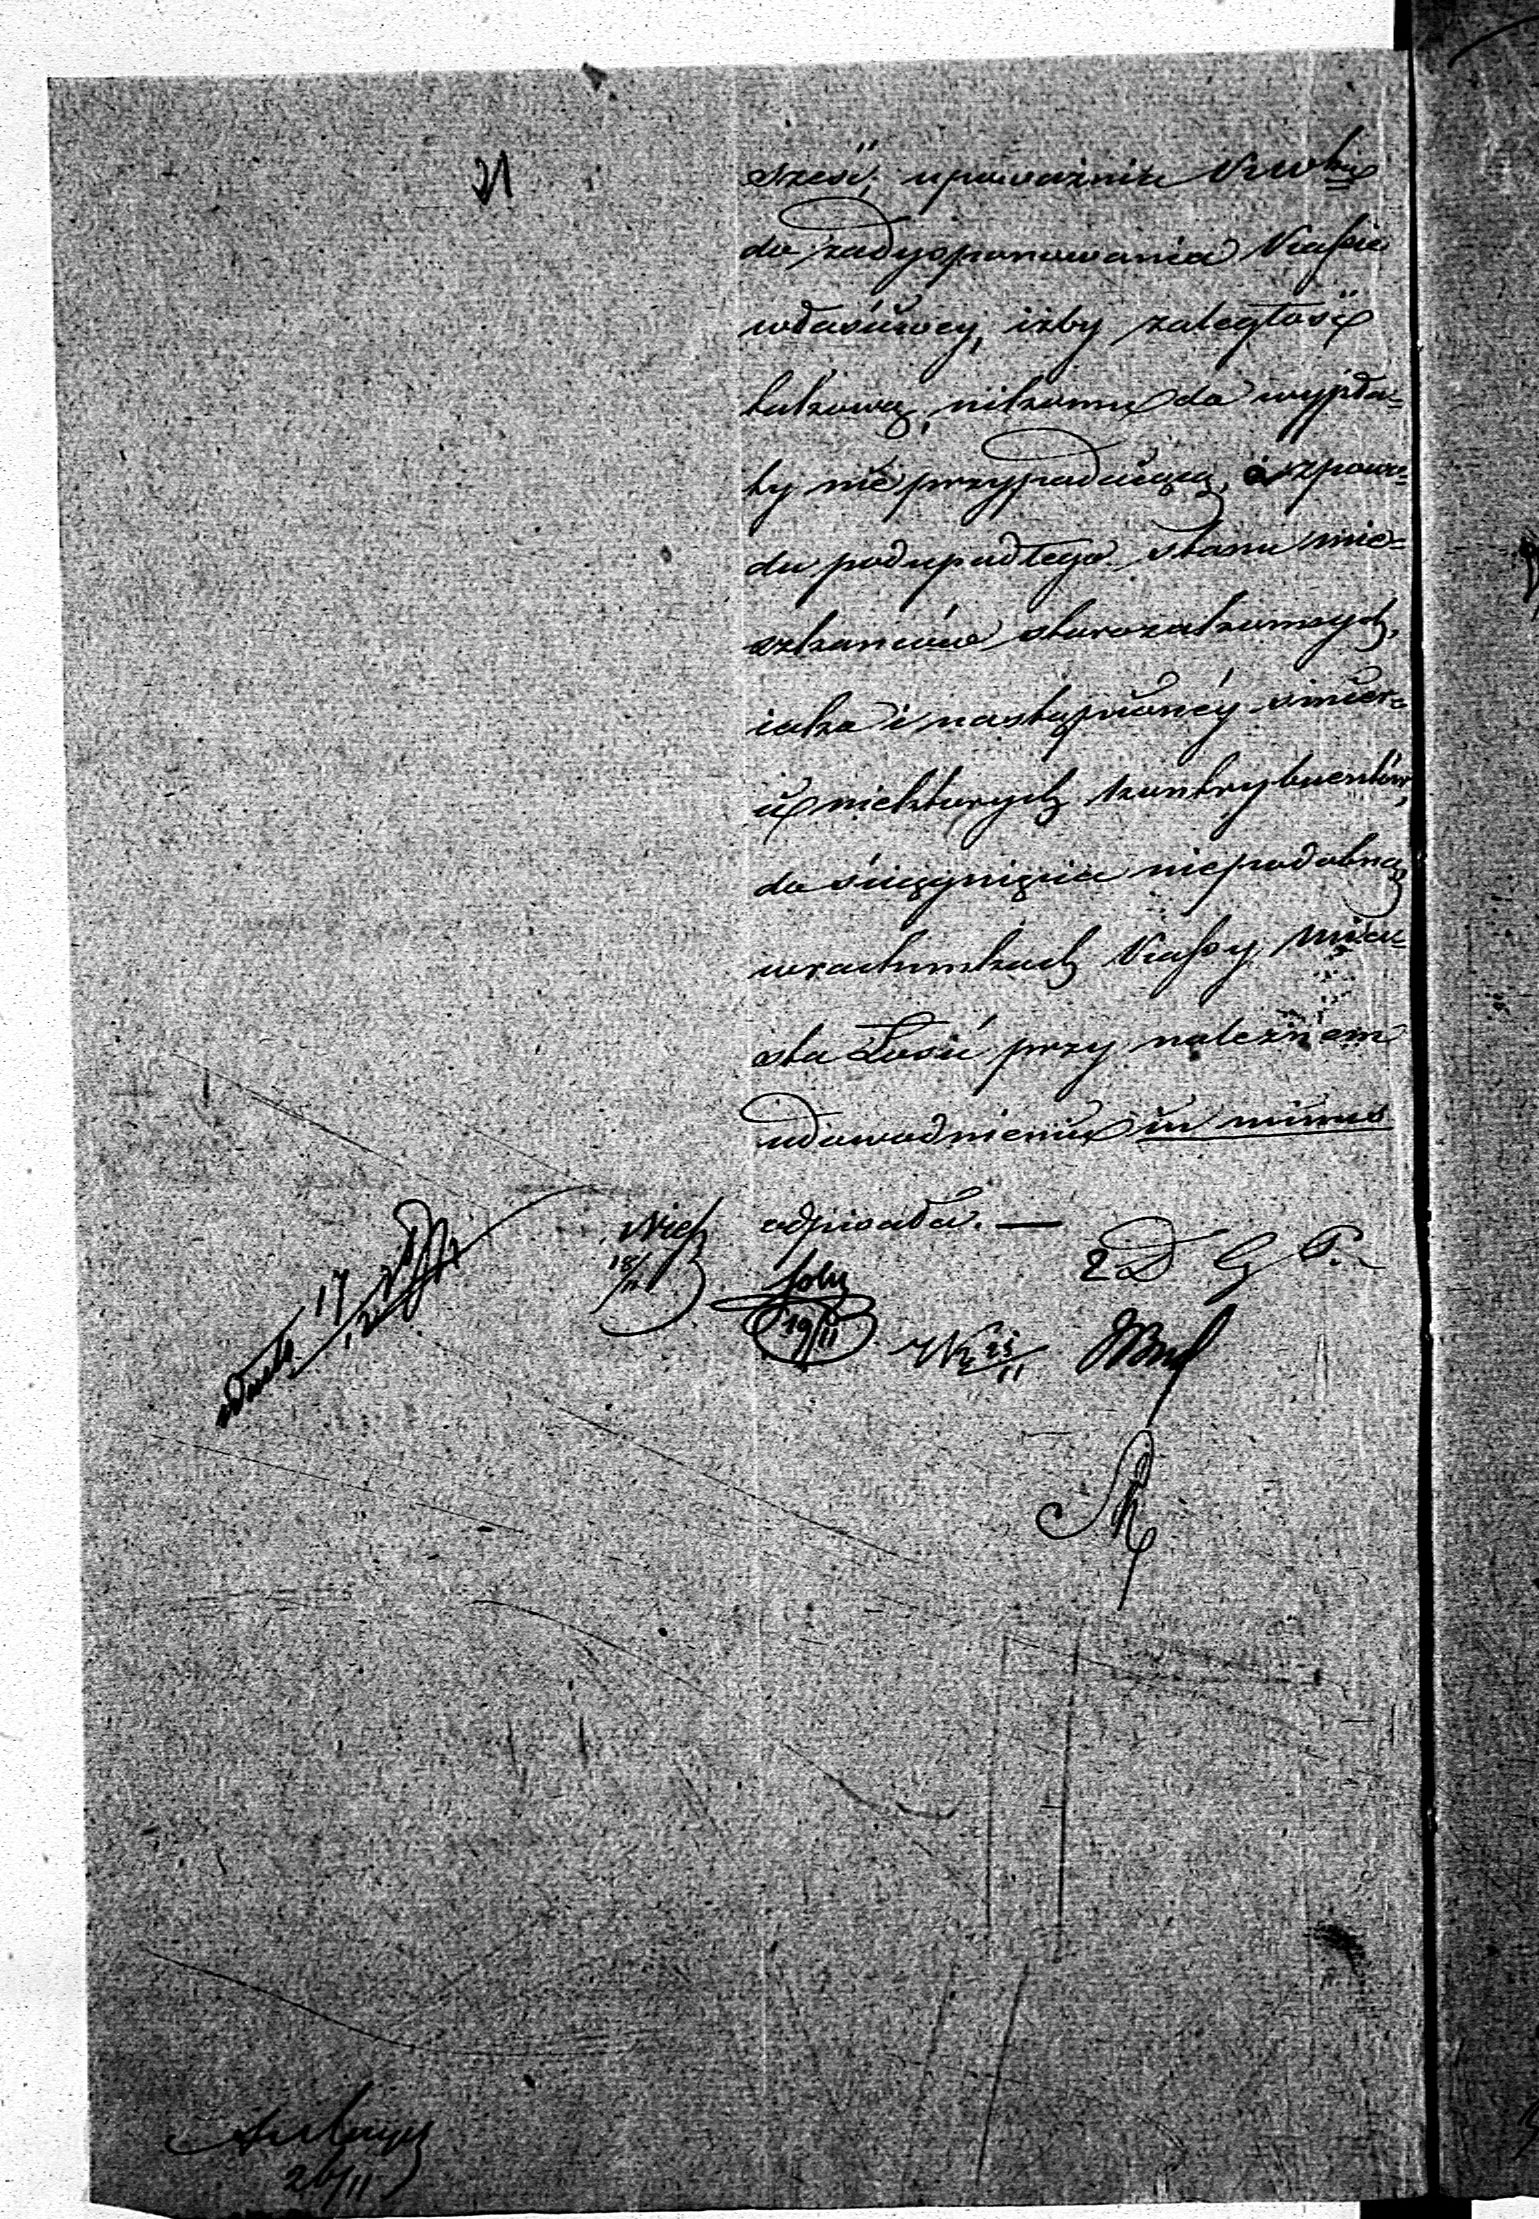 21
sześć, upoważnia KW<sup>ką</sup>
do zadysponowania Kassie
właściwey, iżby zaległość
takową, nikomu do wypła=
ty nie przypadaiącą, a z powo=
du podupadłego stanu mie=
szkańców starozakonnych,
iako i nastąpioney śmier=
ci niektorych kontrybuentów,
do ściągnięcia niepodobną
w rachunkach Kassy Mia=
sta Łosic przy należnem
udowodnieniu in minus
odpisała. —
18/11
19/11
23/11
D G P.
17
26/11